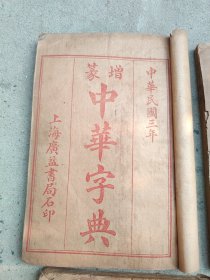 中華民國三年
增篆
中華字典
上海廣益書局石印